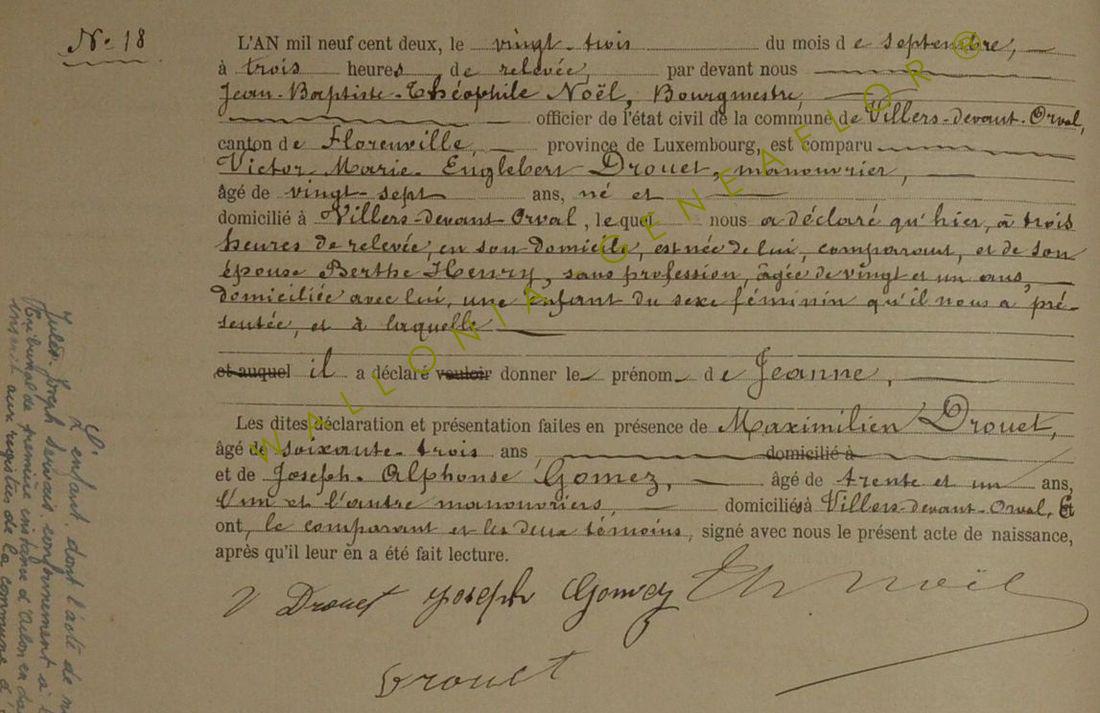 N° 18
L'AN mil neuf cent deux, le vingt-trois du mois de septembre,
à trois heures de relevée, par devant nous
Jean-Baptiste-Théophile Noël, Bourgmestre,
officier de l'état civil de la commune de Villers-devant-Orval,
canton de Florenville, province de Luxembourg, est comparu
Victor-Marie-Englebert Drouet, manouvrier,
âgé de vingt-sept ans, né et
domicilié à Villers-devant-Orval, lequel nous a déclaré qu'hier, à trois
heures de relevée, en son domicile, est née de lui, comparant, et de son
épouse Berthe Henry, sans profession, âgée de vingt et un ans,
domiciliée avec lui, une enfant du sexe féminin qu'il nous a pré-
sentée, et à laquelle
et auquel il a déclaré vouloir donner le prénom de Jeanne,
Les dites déclaration et présentation faites en présence de Maximilien Drouet,
âgé de soixante-trois ans, domicilié à
et de Joseph-Alphonse Gomez, âgé de trente et un ans,
l'un et l'autre manouvriers, domiciliés à Villers-devant-Orval, Et
ont, le comparant et les deux témoins, signé avec nous le présent acte de naissance,
après qu'il leur en a été fait lecture.
V Drouet Joseph Gomez Th Noël
Drouet
L'enfant dont l'acte de
Jules Joseph Servais conformément à
Tribunal de première instance d'Arlon en
inscrit aux registres de la commune
WALLONIA GENEAFLOR ®